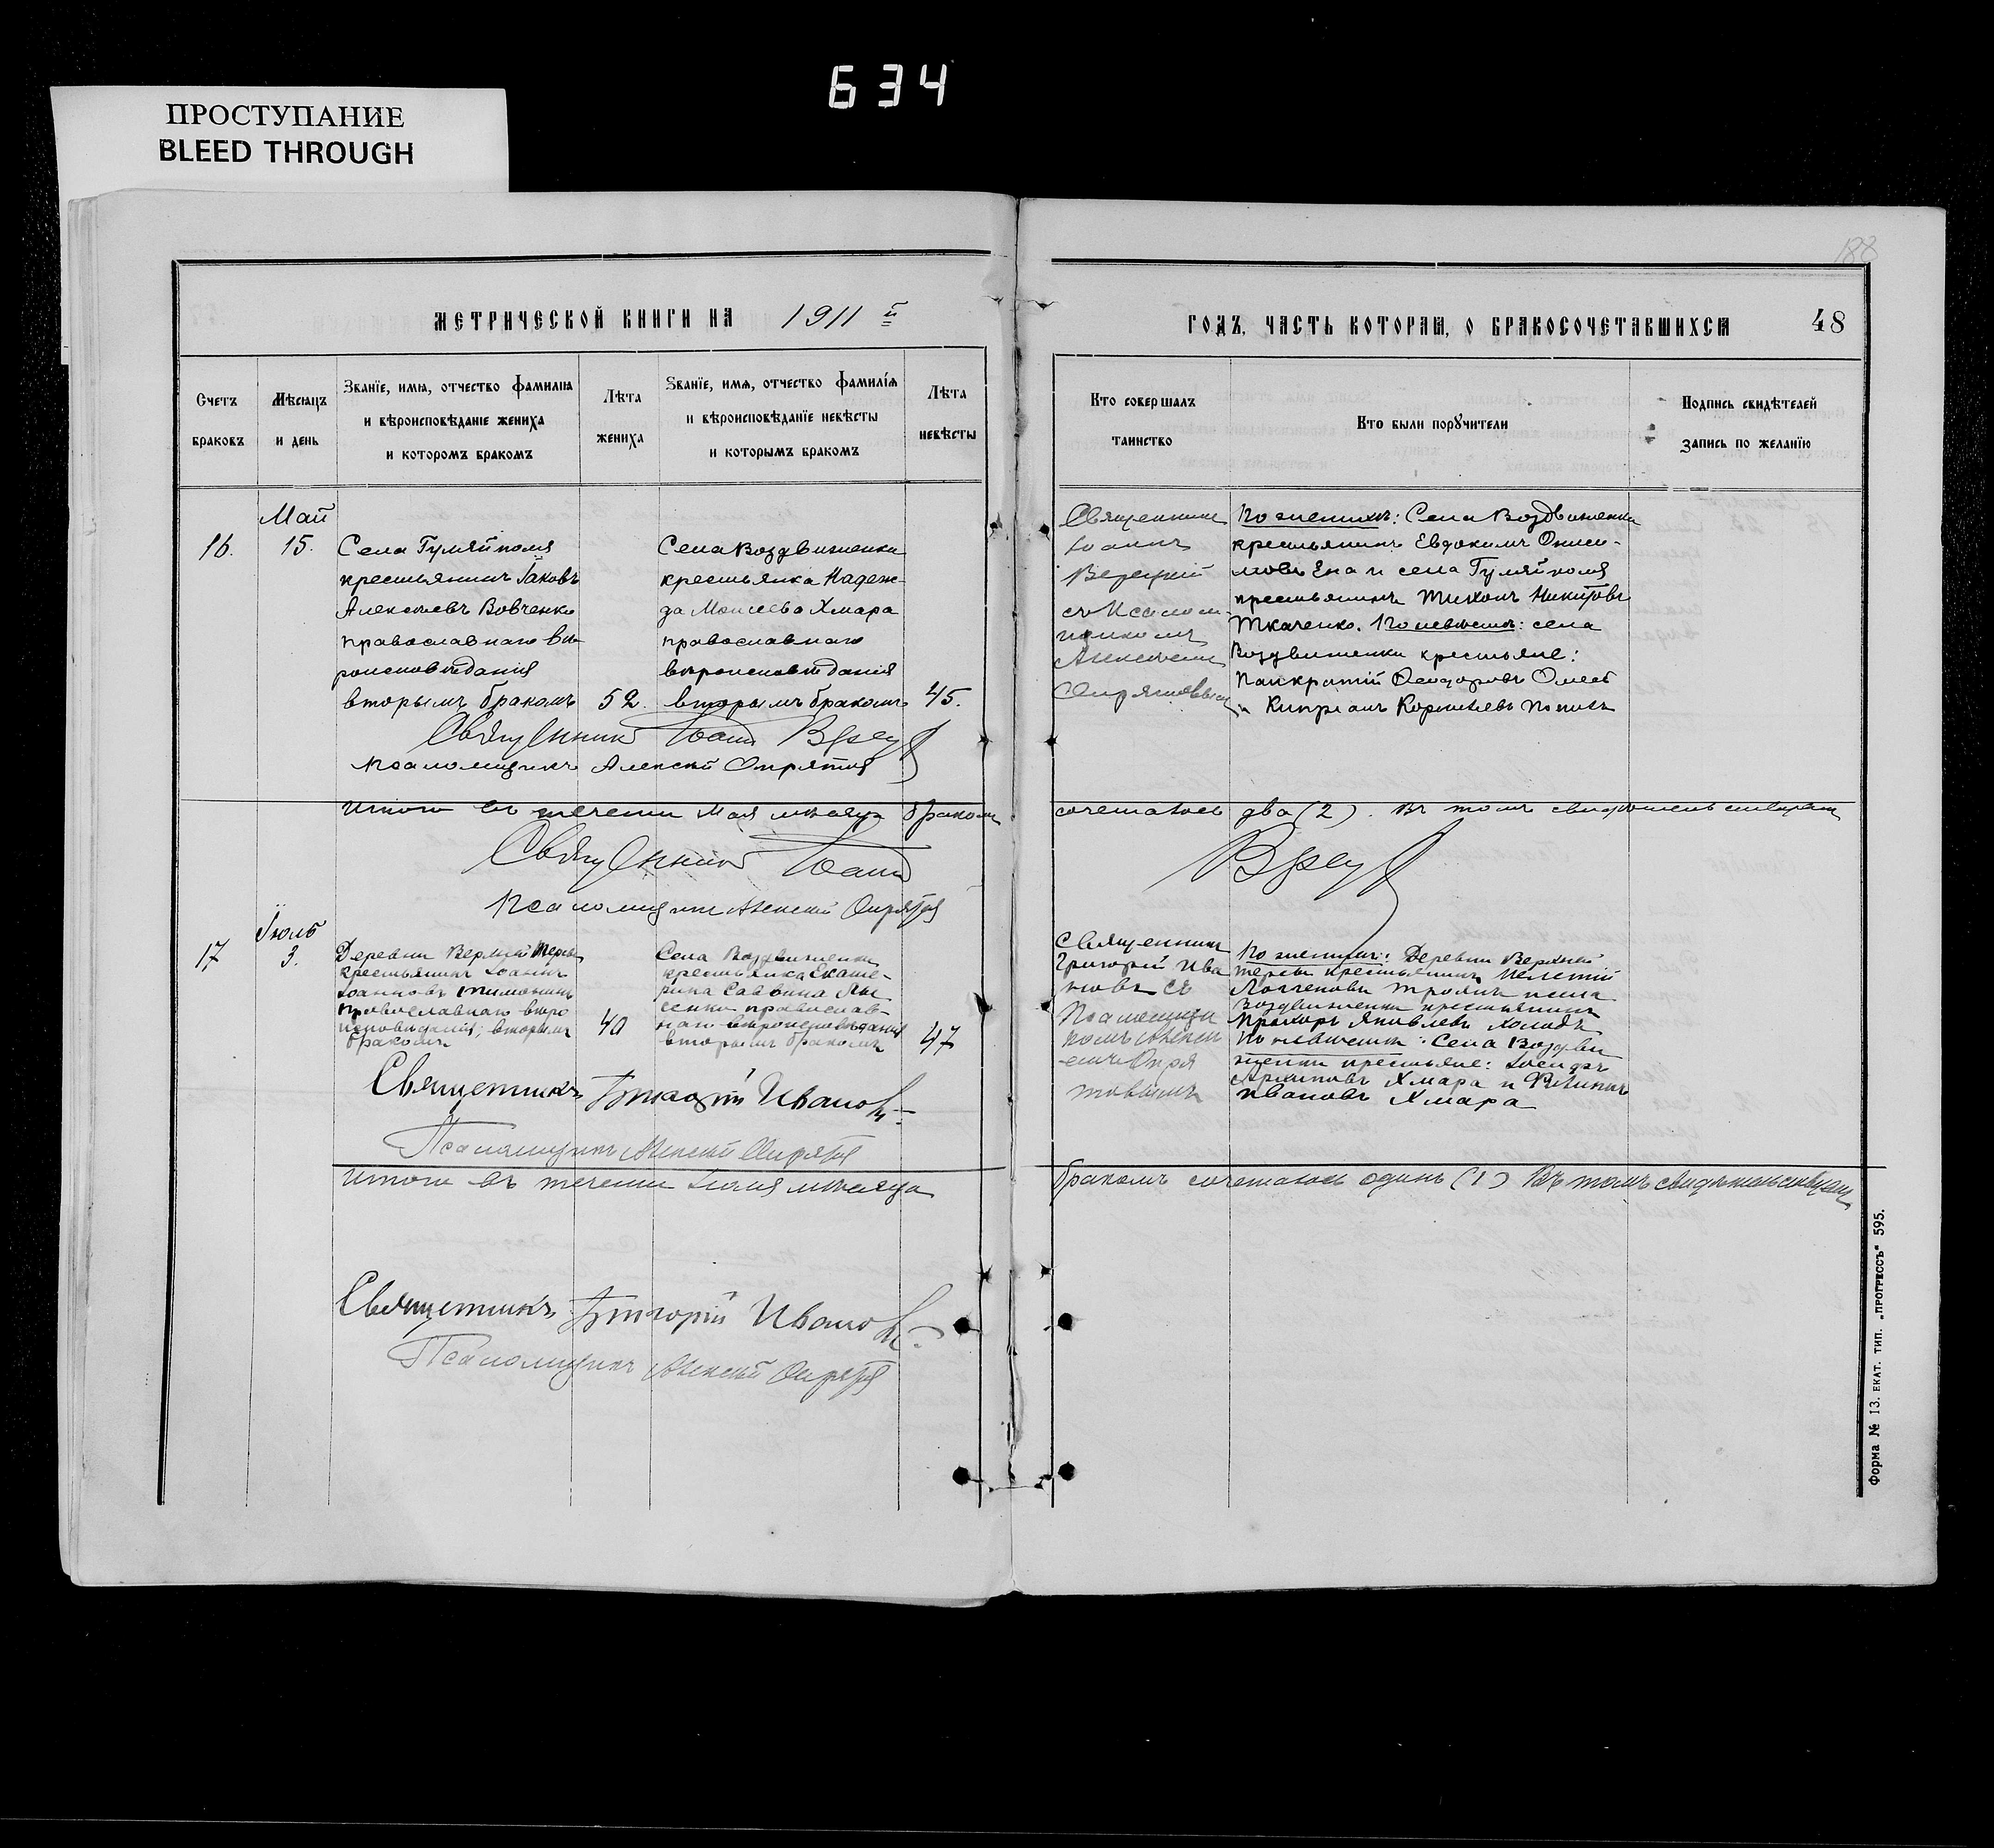 634
ПРОСТУПАНИЕ
BLEED THROUGH
188
МЕТРИЧЕСКОЙ КНИГИ НА 1911 й
ГОДЪ, ЧАСТЬ КОТОРАЯ, О БРАКОСОЧЕТАВШИХСЯ 48
Счетъ
браковъ
Мѣсяцъ
и день
Званїе, имя, отчество фамилїя
и вѣроисповѣданїе жениха
и которомъ бракомъ
Лѣта
жениха
Званїе, имя, отчество фамилїя
и вѣроисповѣданїе невѣсты
и которымъ бракомъ
Лѣта
невѣсты
Кто совершалъ
таинство
Кто были порꙋчители
Подпись свидѣтелей
запись по желанїю
Май
16. 15.
Села Гуляйполя
крестьянинъ Іаковъ
Алексѣевъ Вовченко
православнаго вѣ-
роисповѣданія
вторымъ бракомъ
52.
Села Воздвиженки
крестьянка Надеж-
да Моисеева Хмара
православнаго
вѣроисповѣданія
вторымъ бракомъ
45.
Священникъ
Іоаннъ
съ Псалом-
щикомъ
Алексѣемъ
По женихѣ: Села Воздвиженки
крестьянинъ Евдокимъ Ониси-
мовъ и села Гуляйполя
крестьянинъ Тихонъ Никитовъ
Ткаченко. По невѣстѣ: села
Воздвиженки крестьяне:
Панкратій Ѳеодоровъ
и Кипріанъ Корнилѣевъ
Священникъ Іоаннъ
Псаломщикъ Алексій Опрятовъ
Итого въ теченіи Мая мѣсяца бракомъ
сочеталось два (2). Въ томъ свидѣтельствуемъ
Священникъ Іоаннъ
Псаломщикъ Алексій Опрятовъ
Іюль
17 3.
Деревни Верхней Терсы
крестьянинъ Іоаннъ
Іоанновъ Тимошинъ
православнаго вѣро
исповѣданія, вторымъ
бракомъ
40
Села Воздвиженки
крестьянка Екате-
рина Саввина Лы
сенко православ-
наго вѣроисповѣданія
вторымъ бракомъ
47
Священникъ
Григорій Ива
новъ съ
Псаломщи
комъ Алексѣ
емъ Опря
товымъ
По женихѣ: Деревни Верхней
Терсы крестьянинъ Мелетій
Троянъ и села
Воздвиженки крестьянинъ
Прохоръ Яковлевъ Холодъ
По невѣстѣ: Села Воздви
женки крестьяне: Іосифъ
Архиповъ Хмара и Филиппъ
Ивановъ Хмара
Священникъ Григорій Ивановъ
Псаломщикъ Алексій Опрятовъ
Итого въ теченіи Іюля мѣсяца
бракомъ сочеталось одинъ (1) Въ томъ свидѣтельствуемъ
Священникъ Григорій Ивановъ
Псаломщикъ Алексій Опрятовъ
Форма № 13. ЕКАТ. ТИП. „ПРОГРЕССЪ“ 595.